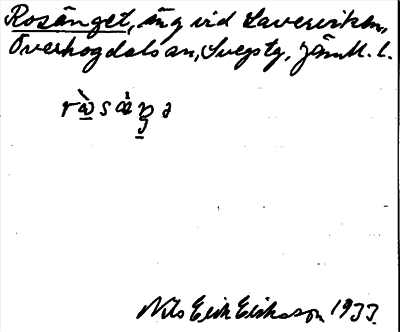 Rosänget, äng vid Laverviken,
Överhogdals sn, Svegs tg, Jämtl. l.
Nils Erik Eriksson 1933